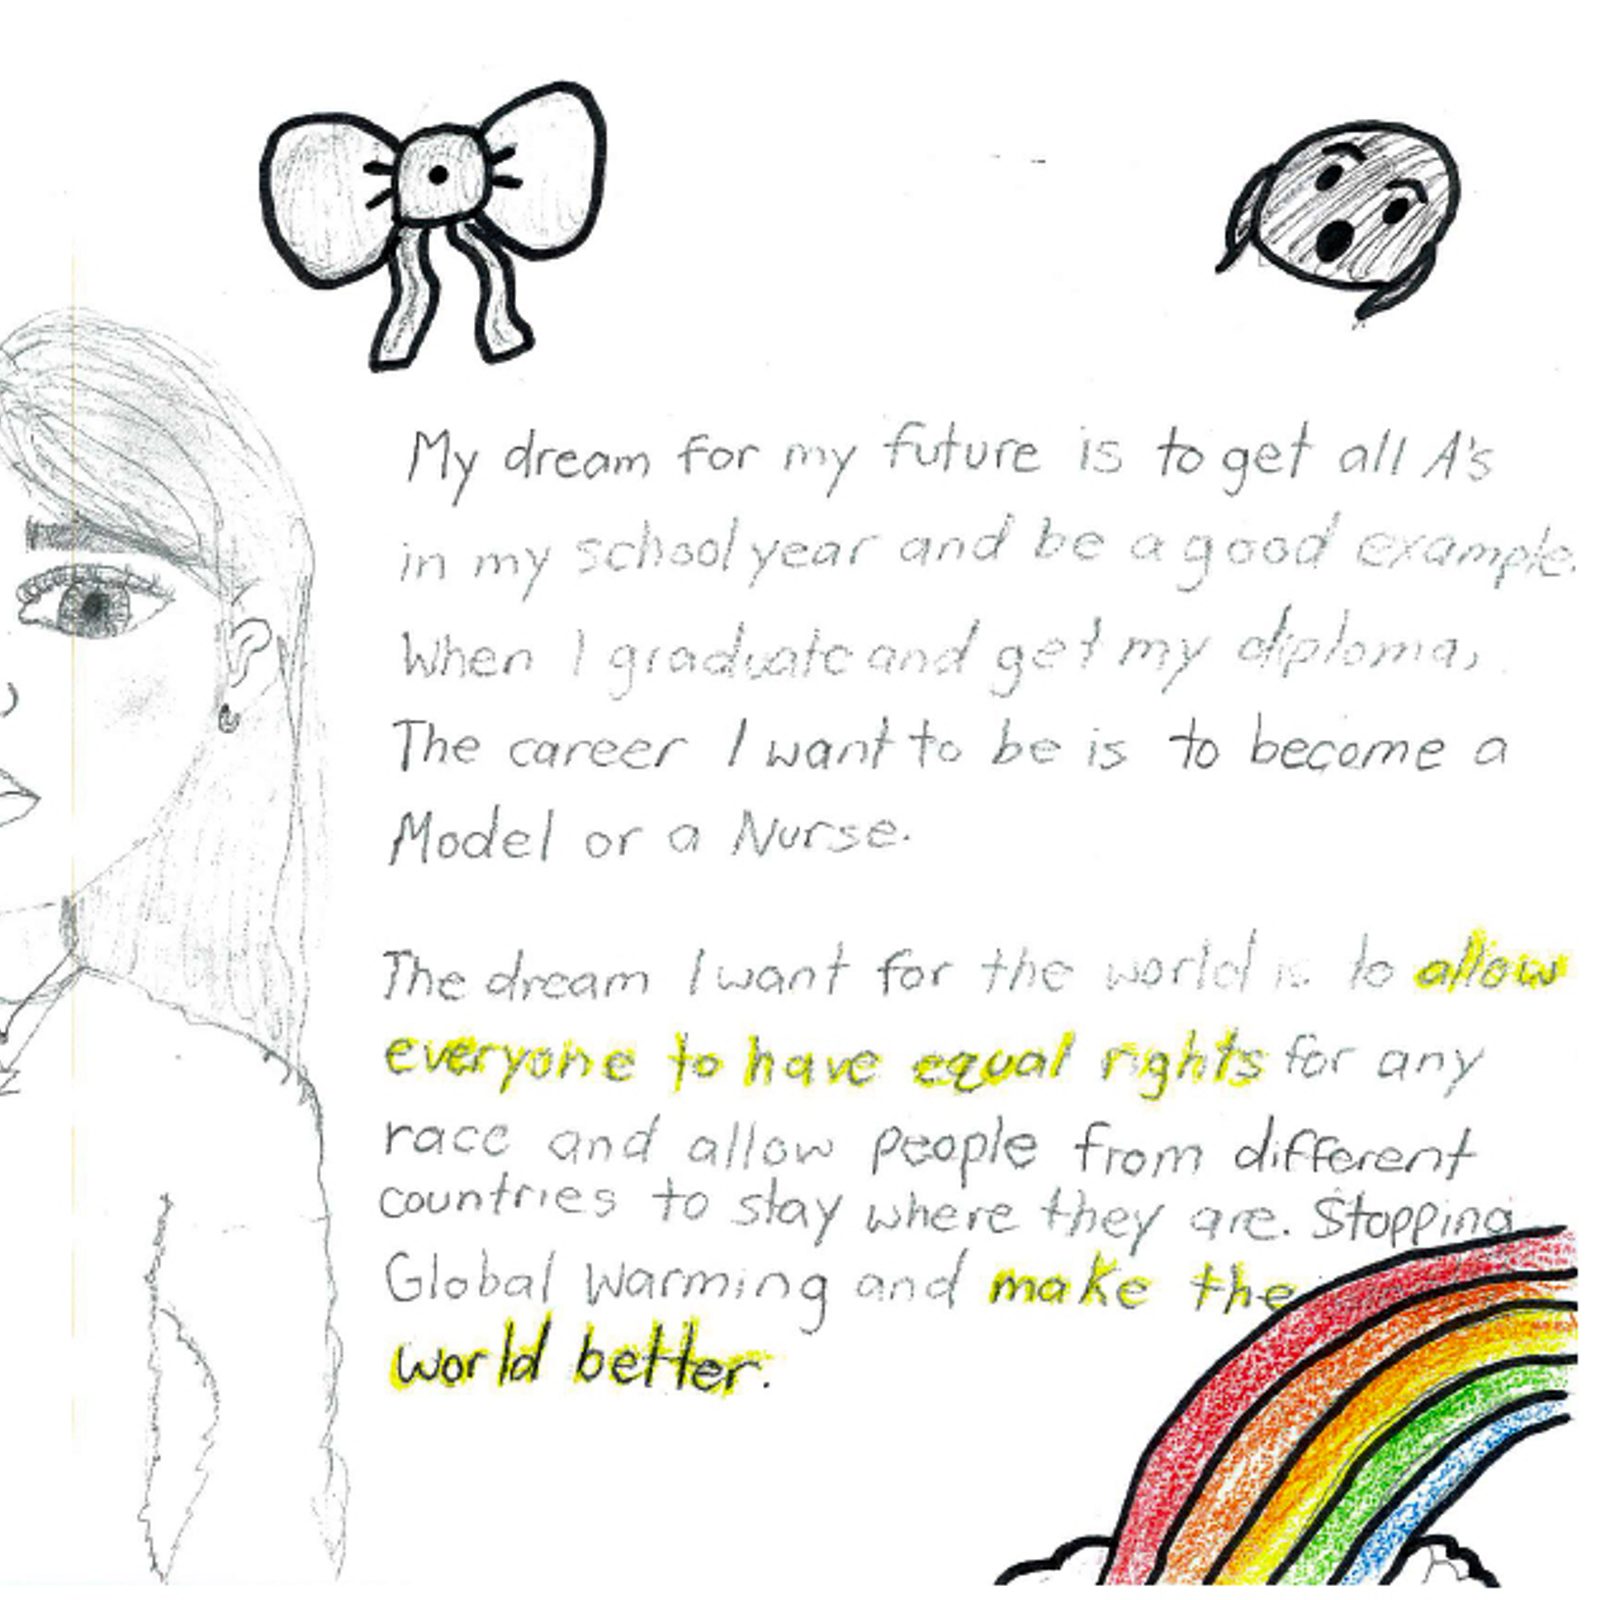 My dream for my future is to get all A's
in my school year and be a good example.
When I graduate and get my diploma,
The career I want to be is to become a
Model or a Nurse.
The dream I want for the world is to allow
everyone to have equal rights for any
race and allow people from different
countries to stay where they are. Stopping
Global Warming and make the
world better.